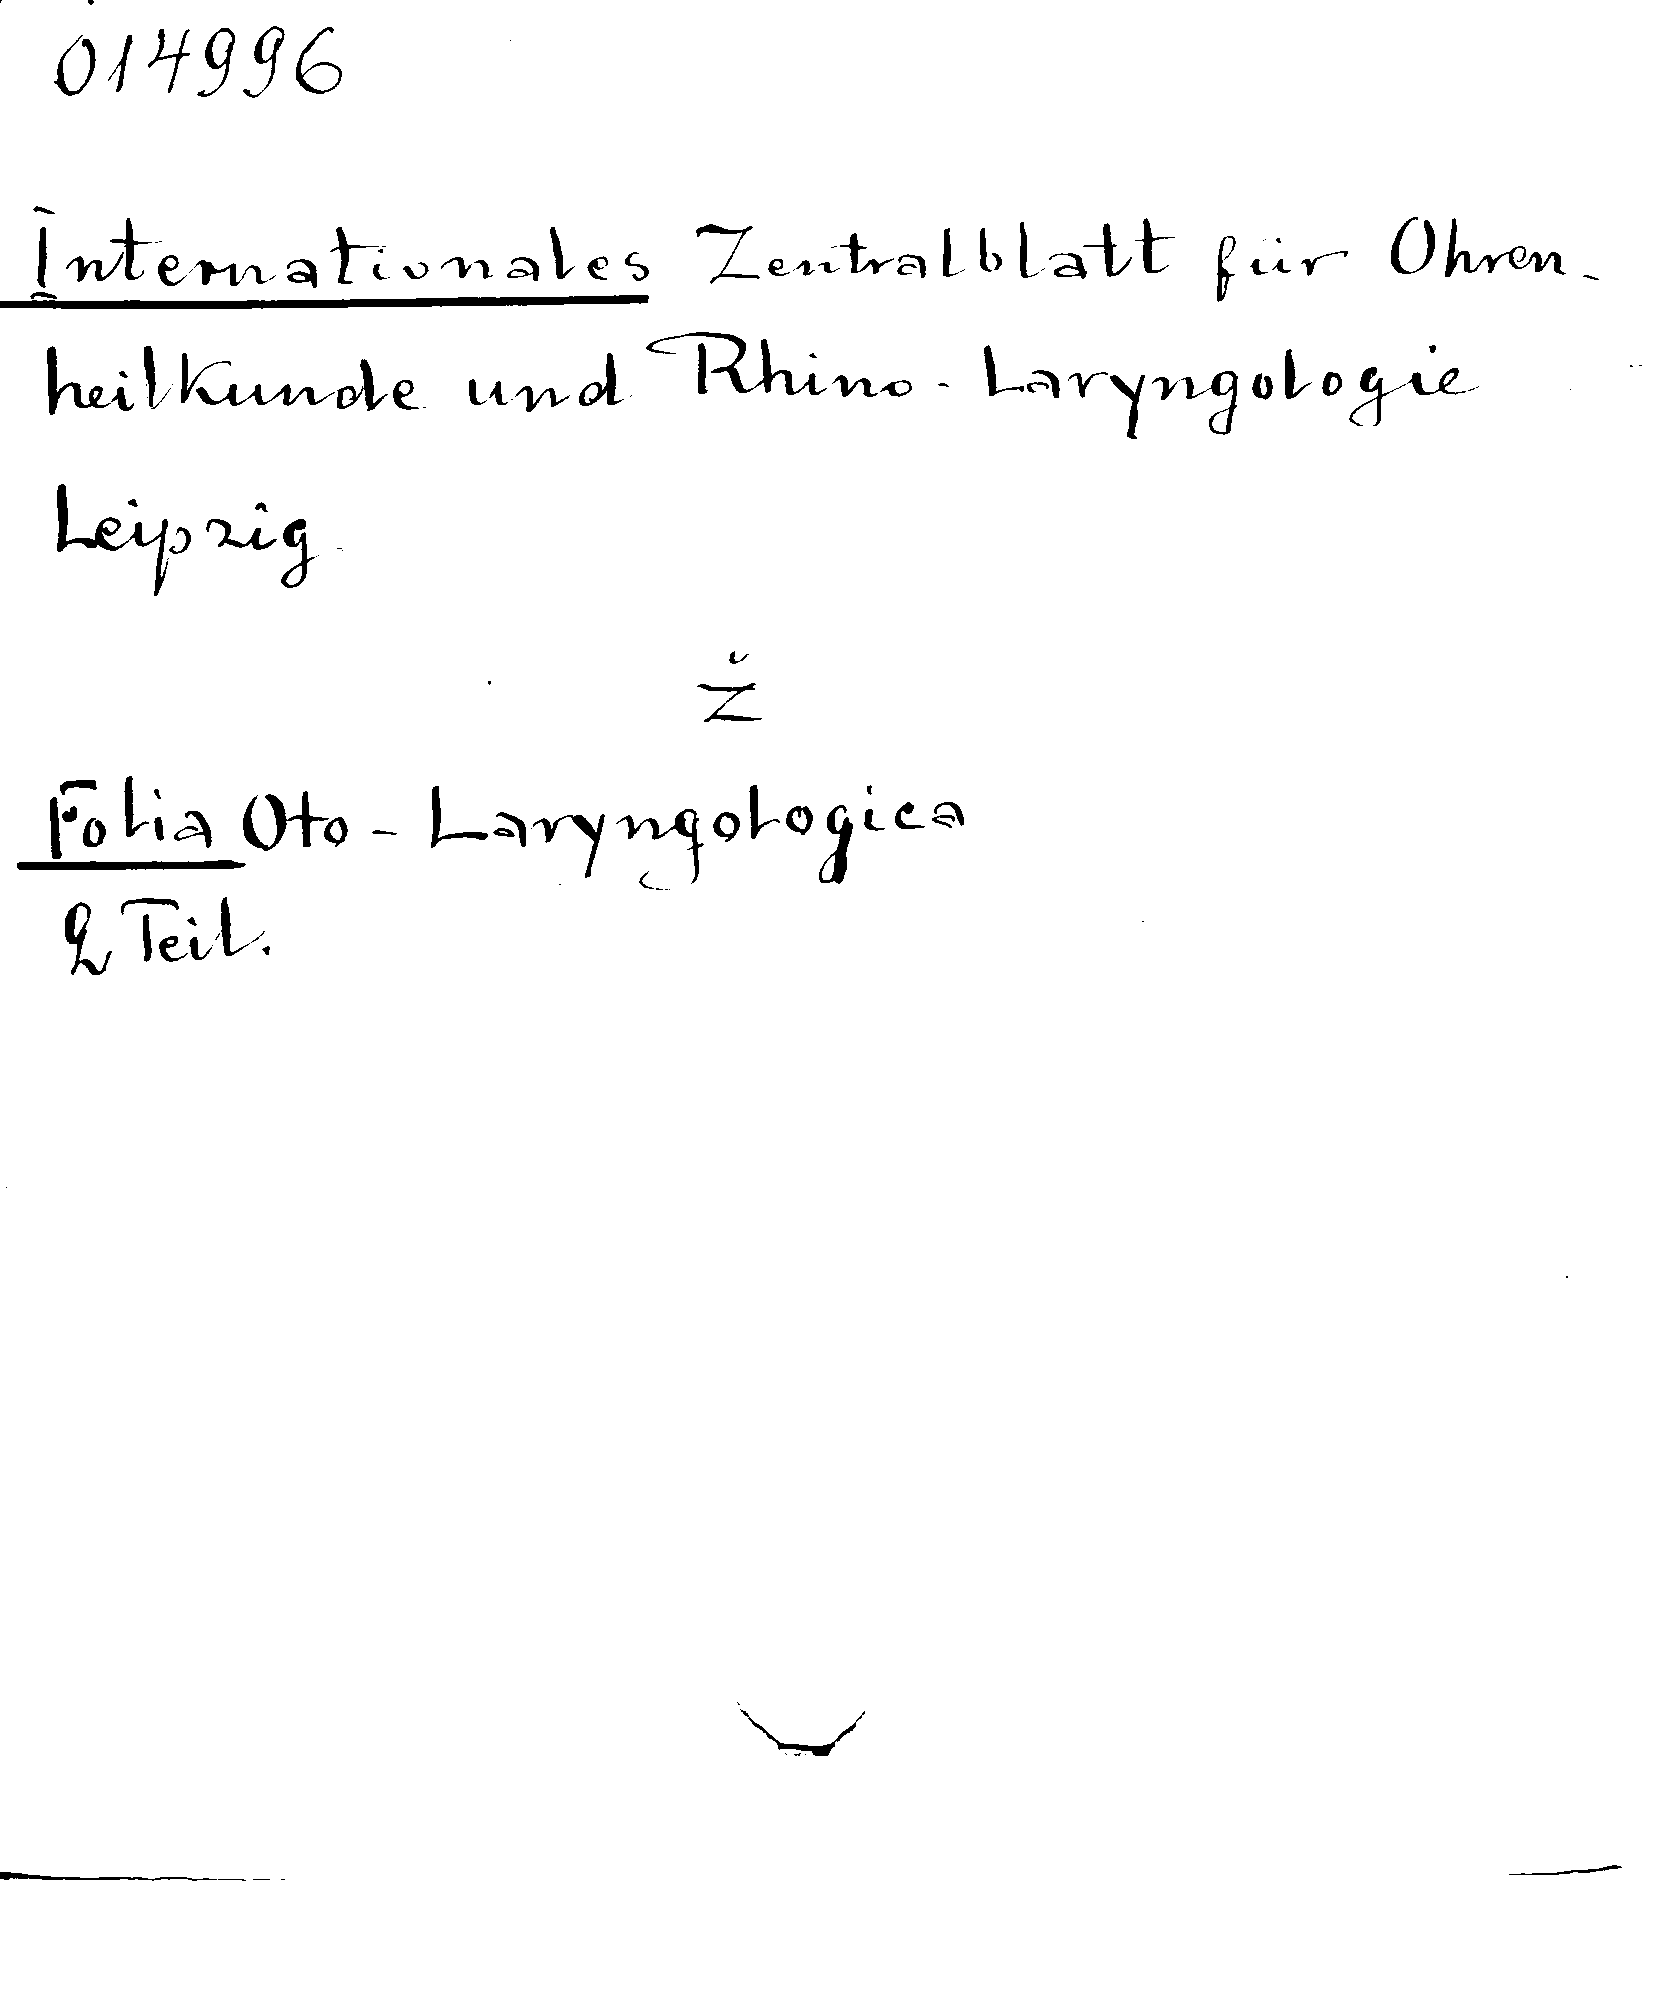 014996
Internationales Zentralblatt für Ohren-
heilkunde und Rhino-Laryngologie
Leipzig
Ž
Folia Oto-Laryngologica
2 Teil.